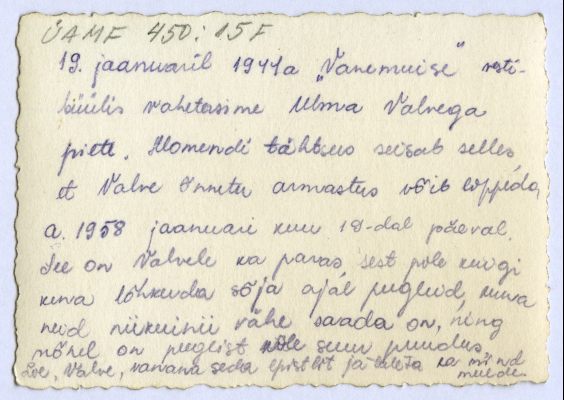 ÜAMF 450:15 F
19. jaanuaril 1941a "Vanemuise" vesti-
büülis vahetasime Ulma Valvega
pilte. Momendi tähtsus seisab selles,
et Valve õnnetu armastus võib lõppeda
a. 1958 jaanuari kuu 19-dal päeval.
See on Valvele ka paras, sest pole kuigi
kena lõhkuda sõja ajal peegleid, kuna
neid niikuinii vähe saada on, ning
mõnel on peeglist suur puudus
Loe, Valve, vanana seda epistlit ja tuleta ka mind
meelde.